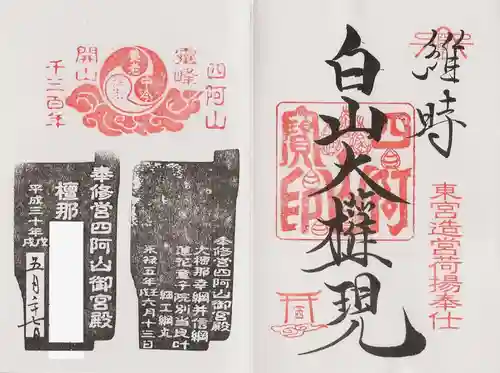 維時
白山大権現
四阿
寶印
東宮造営荷揚奉仕
四阿山
霊峰
開山
千二百年
奉修営四阿山御宮殿
大檀那幸綱并信綱
蓮花童子院別当良叶
細工綱丸
永禄五年壬六月十三日
奉修営四阿山御宮殿
檀那
平成三十年戊戌